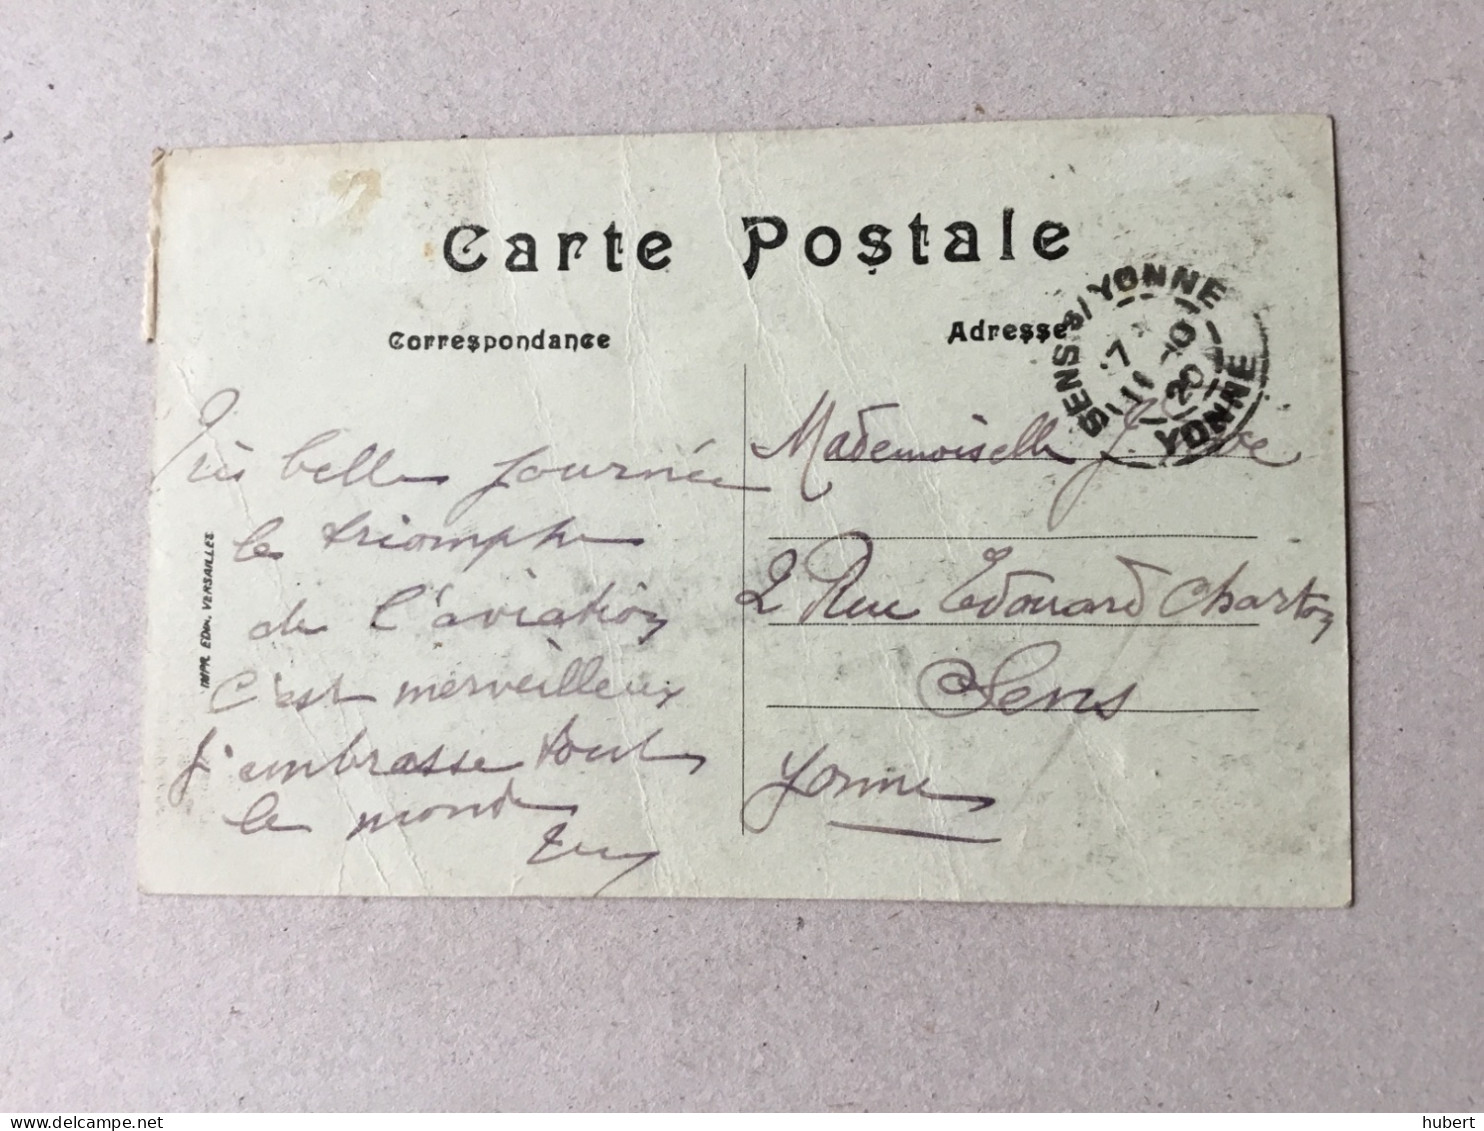 Carte Postale
Correspondance
Adresse
SENS S/ YONNE
7 - 10
11 20
YONNE
Très belle journée
le triomphe
de l'aviation
c'est merveilleux
J'embrasse tout
le monde
Mademoiselle J.
2 Rue Edouard Charton
Sens
Yonne
IMPR. EDon. VERSAILLES
hubert